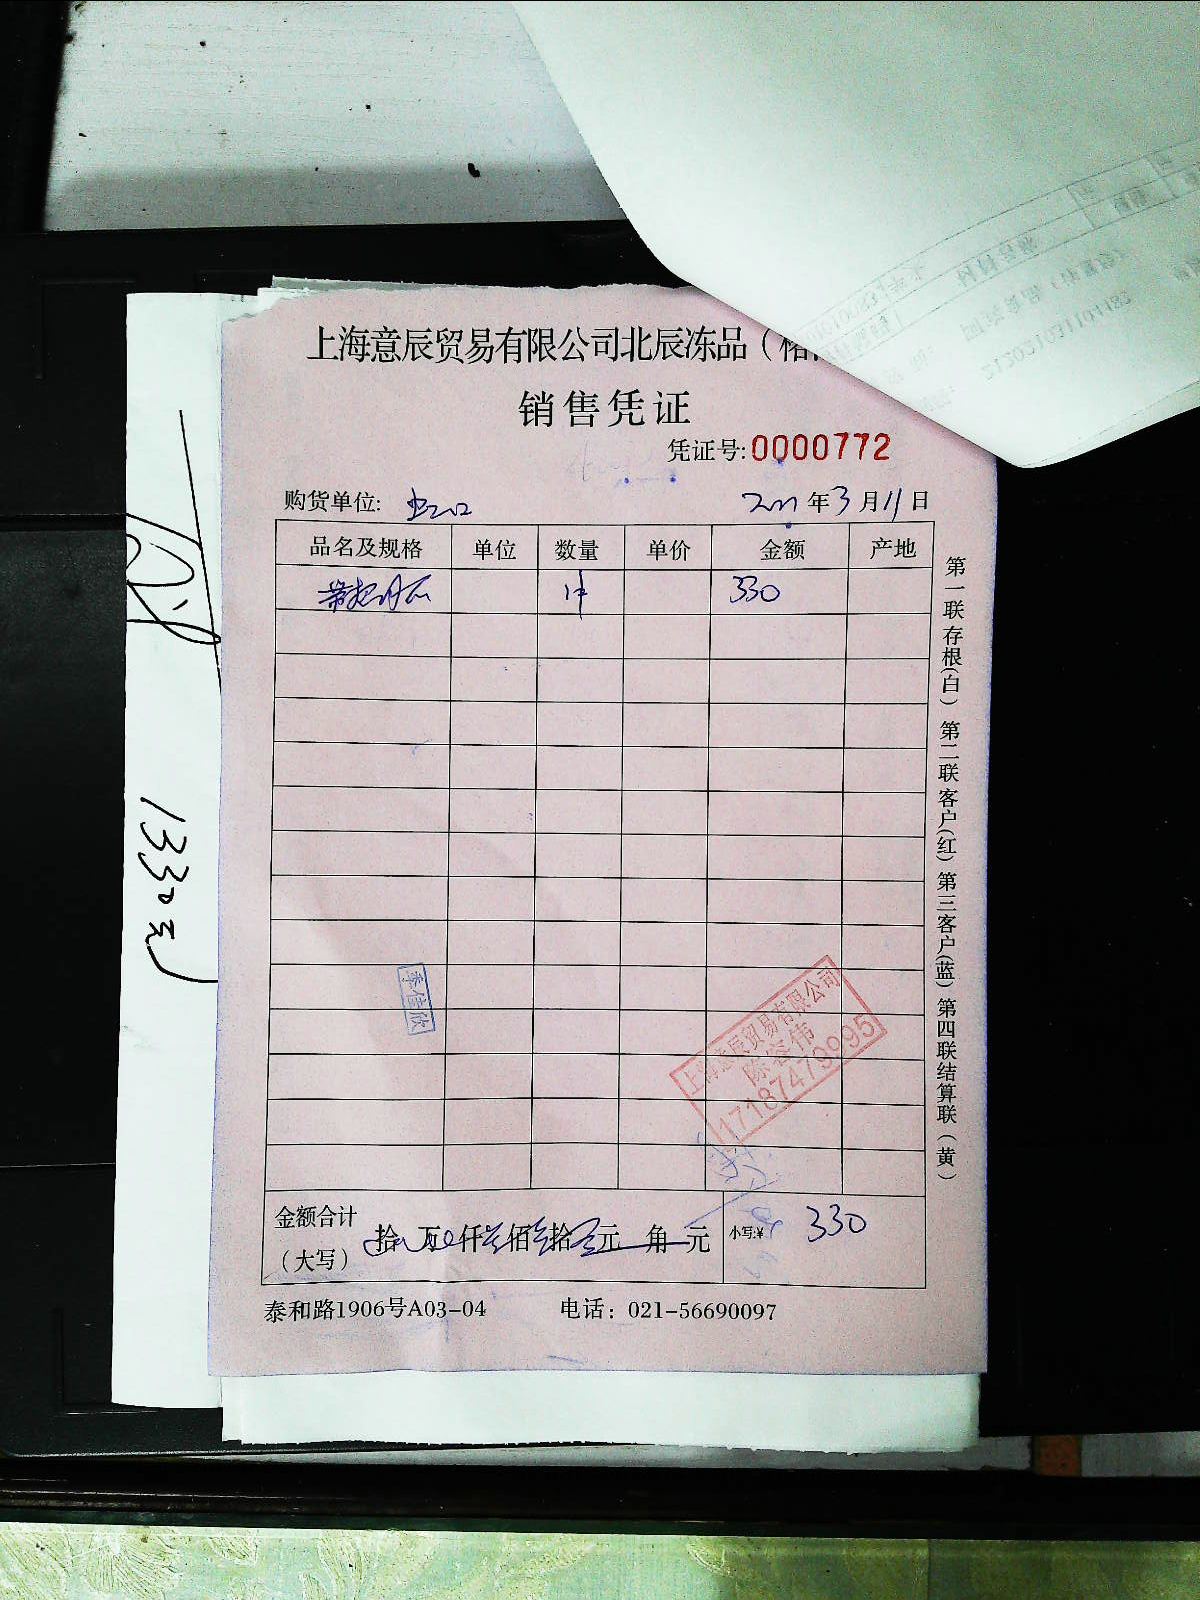 上海意辰贸易有限公司北辰冻品（
销售凭证
凭证号:0000772
购货单位: 虹口 年3月11日
品名及规格 单位 数量 单价 金额 产地
1件 330
第一联存根(白) 第二联客户(红) 第三客户(蓝) 第四联结算联（黄）
季佳欣
上海意辰贸易有限公司
陈容伟
17187479995
金额合计
（大写） 拾 万 仟叁佰叁拾零元 角 元 小写:¥ 330
泰和路1906号A03-04 电话：021-56690097
1330元